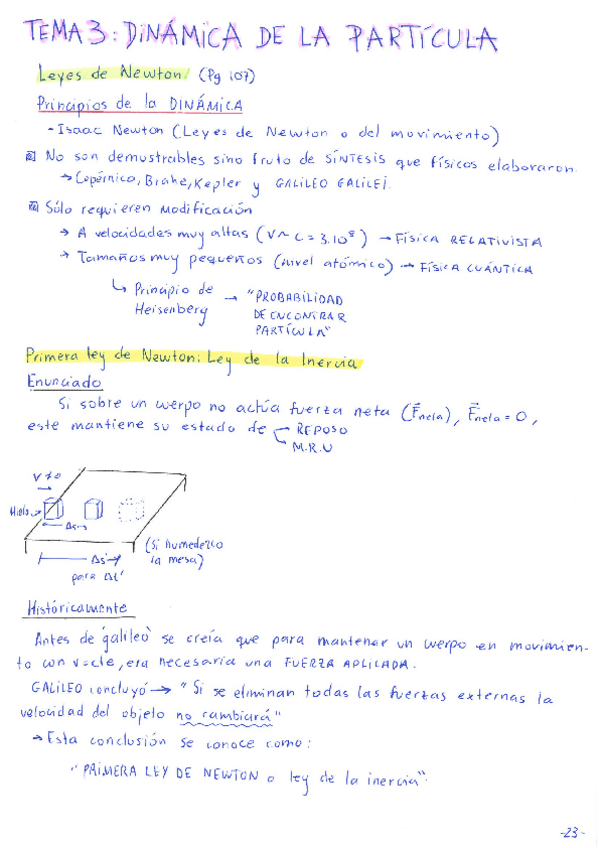 TEMA 3: DINÁMICA DE LA PARTÍCULA
Leyes de Newton (Pg 107)
Principios de la DINÁMICA
- Isaac Newton (Leyes de Newton o del movimiento)
No son demostrables sino fruto de SÍNTESIS que físicos elaboraron.
→ Copérnico, Brahe, Kepler y GALILEO GALILEI.
Sólo requieren modificación
→ A velocidades muy altas (V ~ c = 3.10⁸) → FÍSICA RELATIVISTA
→ Tamaños muy pequeños (nivel atómico) → FÍSICA CUÁNTICA
↳ Principio de Heisenberg → "PROBABILIDAD
DE ENCONTRAR
PARTÍCULA"
Primera ley de Newton: Ley de la Inercia
Enunciado
Si sobre un cuerpo no actúa fuerza neta (F⃗neta), F⃗neta = 0,
este mantiene su estado de REPOSO
M.R.U
V≠0
Hielo
Δs
Δs'
para Δt'
(Si humedezco
la mesa)
Históricamente
Antes de 'galileo' se creía que para mantener un cuerpo en movimien-
to con v=cte, era necesaria una FUERZA APLICADA.
GALILEO concluyó → "Si se eliminan todas las fuerzas externas la
velocidad del objeto no cambiará"
→ Esta conclusión se conoce como:
"PRIMERA LEY DE NEWTON o ley de la inercia".
-23-